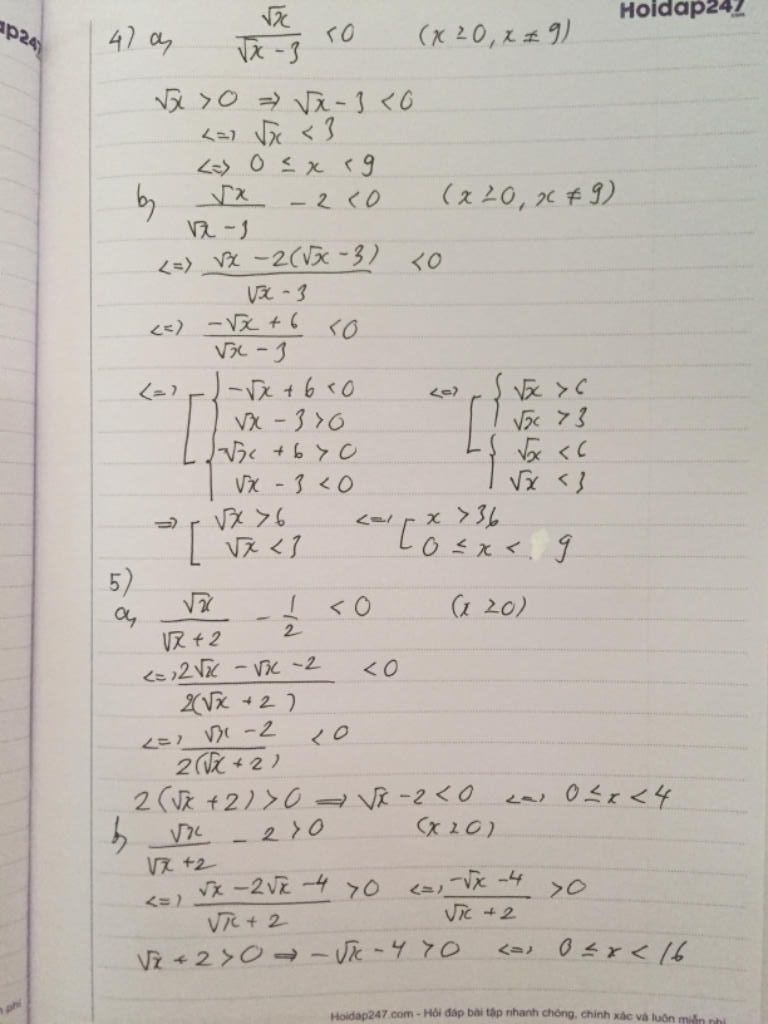 ap247
Hoidap247
.com
4) a, √x/(√x - 3) < 0 (x ≥ 0, x ≠ 9)
√x > 0 => √x - 3 < 0
<=> √x < 3
<=> 0 ≤ x < 9
b, √x/(√x - 3) - 2 < 0 (x ≥ 0, x ≠ 9)
<=> (√x - 2(√x - 3))/(√x - 3) < 0
<=> (-√x + 6)/(√x - 3) < 0
<=> [ { -√x + 6 < 0 <=> [ { √x > 6
√x - 3 > 0 √x > 3
{ -√x + 6 > 0 { √x < 6
√x - 3 < 0 √x < 3
=> [ √x > 6 <=> [ x > 36
√x < 3 0 ≤ x < 9
5)
a, √x/(√x + 2) - 1/2 < 0 (x ≥ 0)
<=> (2√x - √x - 2)/(2(√x + 2)) < 0
<=> (√x - 2)/(2(√x + 2)) < 0
2(√x + 2) > 0 => √x - 2 < 0 <=> 0 ≤ x < 4
b, √x/(√x + 2) - 2 > 0 (x ≥ 0)
<=> (√x - 2√x - 4)/(√x + 2) > 0 <=> (-√x - 4)/(√x + 2) > 0
√x + 2 > 0 => -√x - 4 > 0 <=> 0 ≤ x < 16
phí
Hoidap247.com - Hỏi đáp bài tập nhanh chóng, chính xác và luôn miễn phí